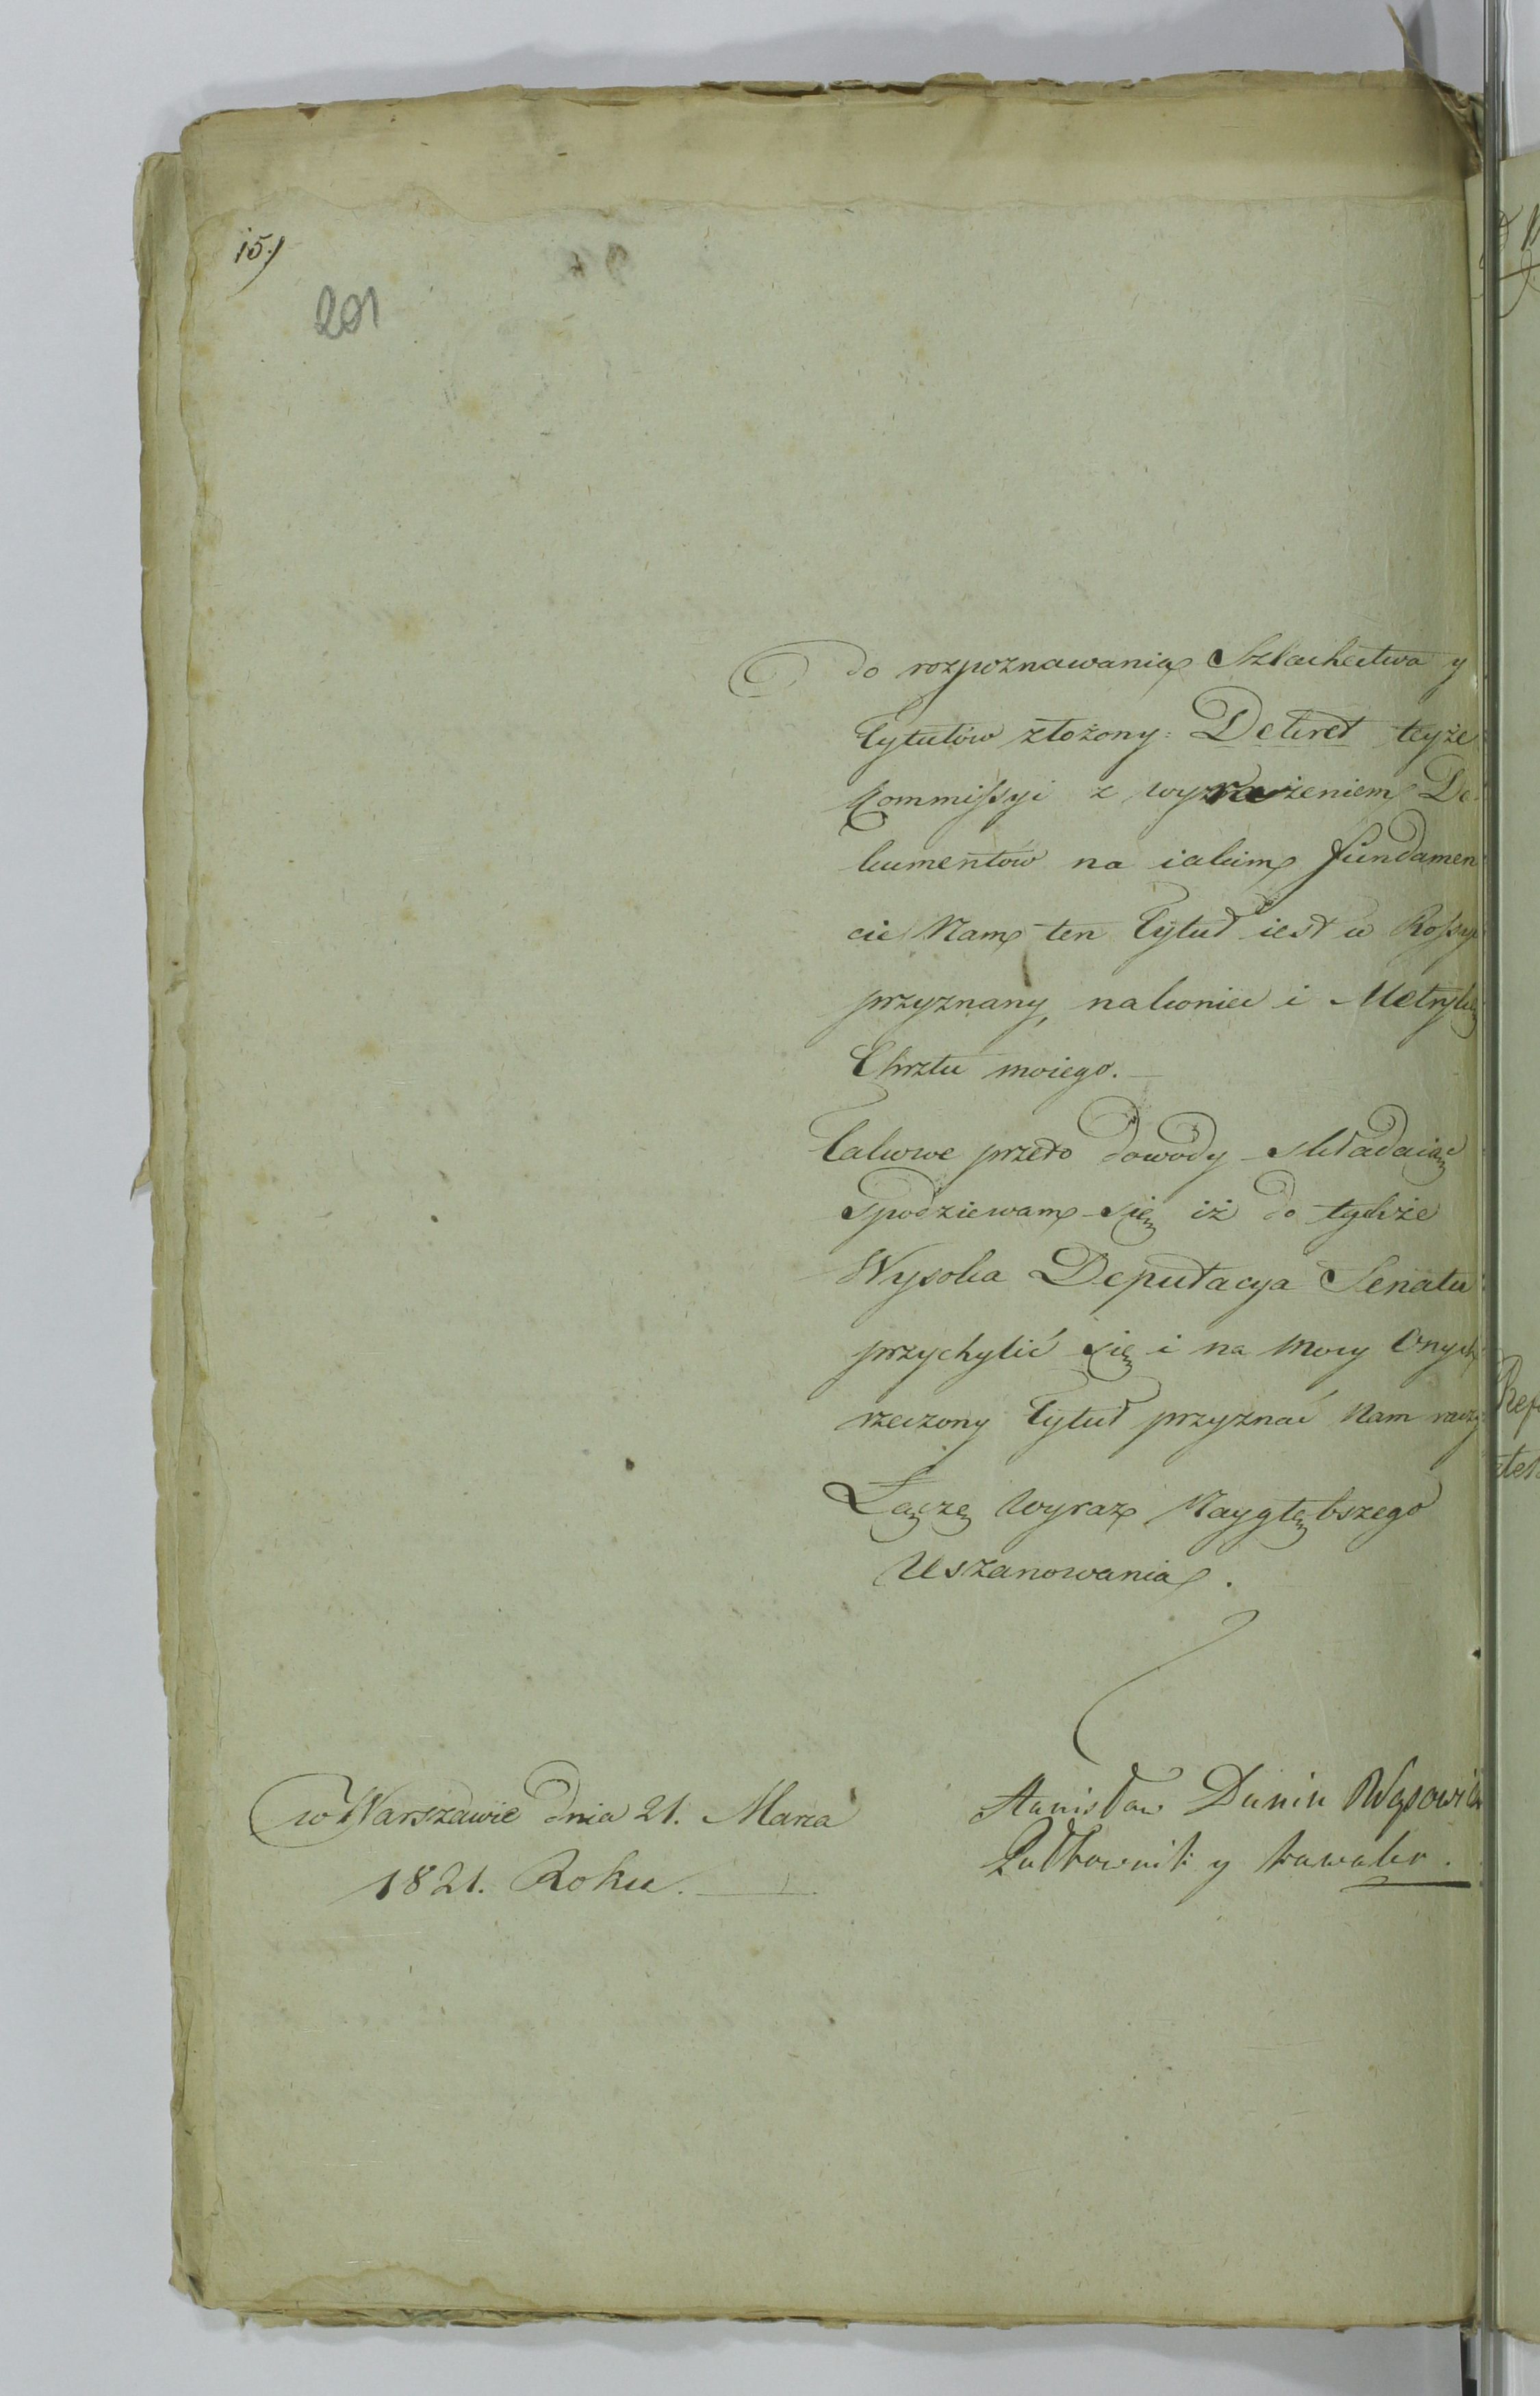 15.)
201
do rozpoznawania Szlachectwa y
Tytułów złożony: Dekret teyże
Kommissyi z wyrażeniem Do
kumentów na iakim fundamen
cie Nam ten Tytuł iest w Rossyi
przyznany, nakoniec i Metrykę
Chrztu moiego.—
Takowe przeto dowody składaiąc
Spodziewam się iż do tychże
Wysoka Deputacya Senatu
przychylić się i na mocy Onych
rzeczony Tytuł przyznać Nam raczy
Łączę Wyraz Naygłębszego
Uszanowania.
w Warszawie dnia 21. Marca
1821. Roku.—
Stanisław Dunin Wąsowicz
Pułkownik y Kawaler.